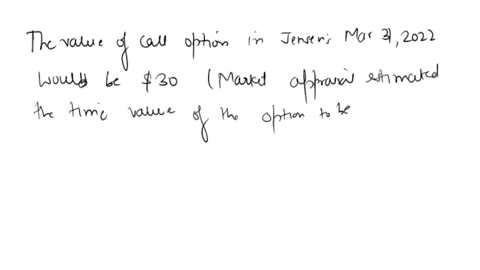 The value of call option in Jensen's Mar 31, 2022
would be $30 (Market appraisal estimated
the time value of the option to be